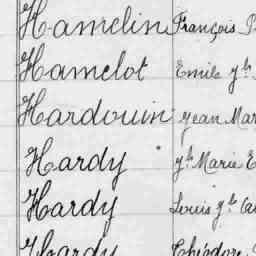 Hamelin François
Hamelot Emile
Hardouin Jean Mar
Hardy Marie E
Hardy Louis
Hardy Théodore